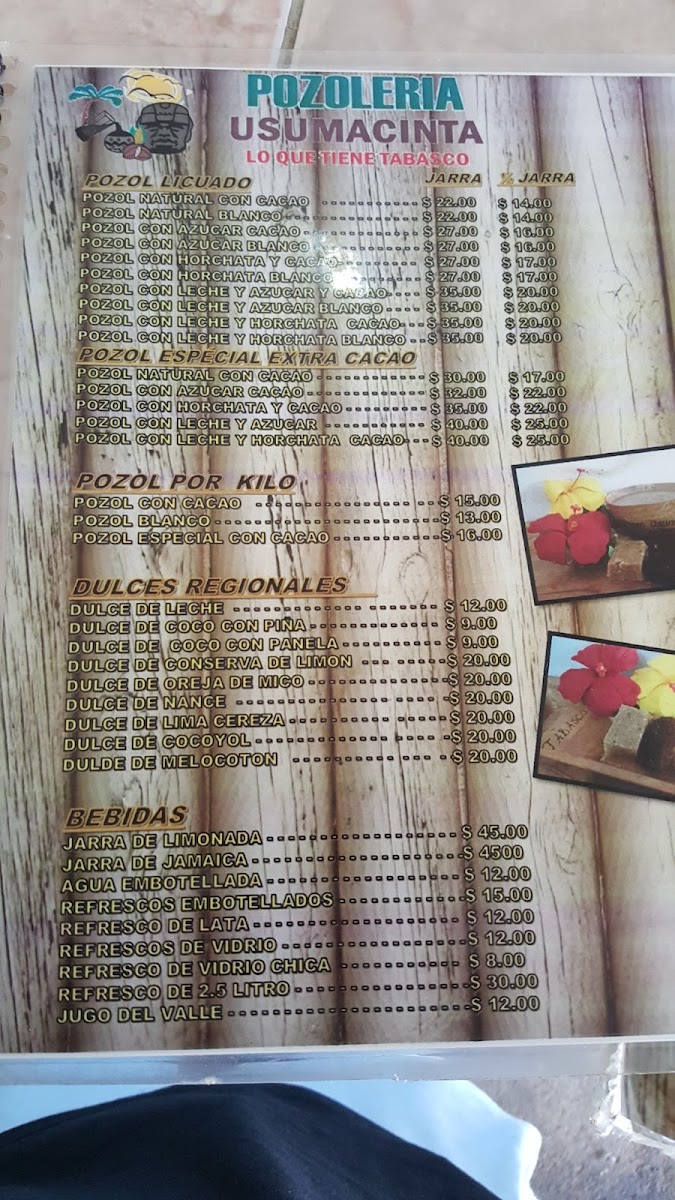 POZOLERIA
USUMACINTA
LO QUE TIENE TABASCO
POZOL LICUADO JARRA ½ JARRA
POZOL NATURAL CON CACAO ------------ $ 22.00 $ 14.00
POZOL NATURAL BLANCO ---------------- $ 22.00 $ 14.00
POZOL CON AZUCAR CACAO ------------- $ 27.00 $ 16.00
POZOL CON AZUCAR BLANCO ------------ $ 27.00 $ 16.00
POZOL CON HORCHATA Y CACAO --------- $ 27.00 $ 17.00
POZOL CON HORCHATA BLANCO ---------- $ 27.00 $ 17.00
POZOL CON LECHE Y AZUCAR Y CACAO ---- $ 35.00 $ 20.00
POZOL CON LECHE Y AZUCAR BLANCO ---- $ 35.00 $ 20.00
POZOL CON LECHE Y HORCHATA CACAO --- $ 35.00 $ 20.00
POZOL CON LECHE Y HORCHATA BLANCO -- $ 35.00 $ 20.00
POZOL ESPECIAL EXTRA CACAO
POZOL NATURAL CON CACAO ------------ $ 30.00 $ 17.00
POZOL CON AZUCAR CACAO ------------- $ 32.00 $ 22.00
POZOL CON HORCHATA Y CACAO --------- $ 35.00 $ 22.00
POZOL CON LECHE Y AZUCAR ----------- $ 40.00 $ 25.00
POZOL CON LECHE Y HORCHATA CACAO --- $ 40.00 $ 25.00
POZOL POR KILO
POZOL CON CACAO ----------------- $ 15.00
POZOL BLANCO ---------------------- $ 13.00
POZOL ESPECIAL CON CACAO ----------- $ 16.00
DULCES REGIONALES
DULCE DE LECHE ------------ ------- ------- $ 12.00
DULCE DE COCO CON PIÑA ------------- $ 9.00
DULCE DE COCO CON PANELA ---------- $ 9.00
DULCE DE CONSERVA DE LIMON --- ----- $ 20.00
DULCE DE OREJA DE MICO ------------- $ 20.00
DULCE DE NANCE ---------- ------- -$ 20.00
DULCE DE LIMA CEREZA ---------- --- $ 20.00
DULCE DE COCOYOL ------------ --- -$ 20.00
DULDE DE MELOCOTON ---------- --- - $ 20.00
TABASCO
BEBIDAS
JARRA DE LIMONADA ------------------ $ 45.00
JARRA DE JAMAICA -------------------$ 4500
AGUA EMBOTELLADA ------------------ $ 12.00
REFRESCOS EMBOTELLADOS -----------$ 15.00
REFRESCO DE LATA ------------------- $ 12.00
REFRESCOS DE VIDRIO ----------------$ 12.00
REFRESCO DE VIDRIO CHICA ----------- $ 8.00
REFRESCO DE 2.5 LITRO --------------$ 30.00
JUGO DEL VALLE ---------------------$ 12.00